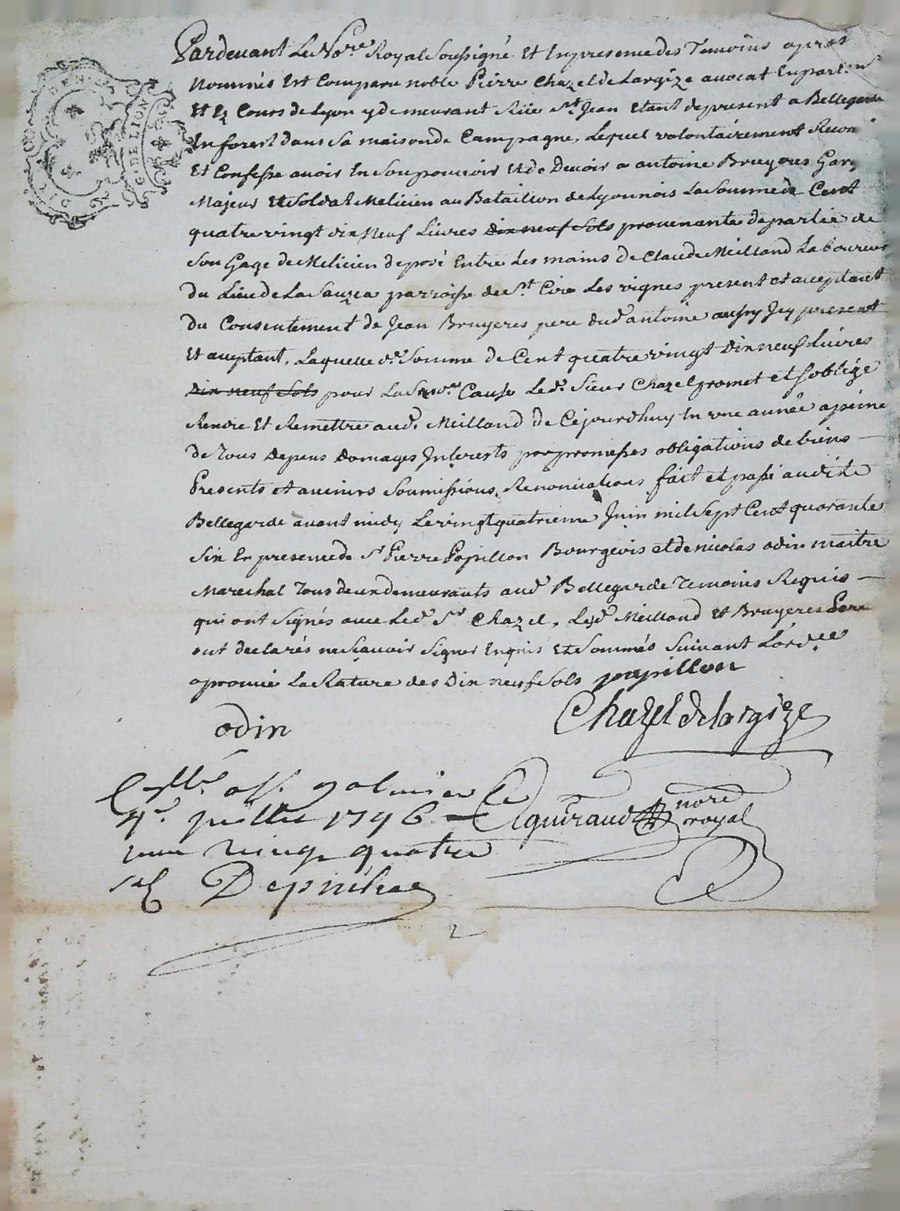 Pardevant Le No.re Royal Soussigné Et En presence des Temoins apres
Nommés Est Comparu noble Pierre Chazel de Largize avocat En parlem.t
Et Ez Cours de Lyon y demeurant Rüe S.t Jean Etant de present a Bellegarde
En forest dans Sa maison de Campagne, Lequel volontairement
Et Confesse avoir En Son pouvoir Et de Devoir a antoine Bruyeres
Majeur Et Soldat Melicien au Bataillon de Lyonnois La Somme de Cent
quatre vingt dix Neuf Livres dix neuf Sols provenante de partie de
Son Gage de Melicien deposé Entre Les mains de Claude Meilland Laboureur
du Lieu de La Sauzea parroisse de S.t Cire Les vignes present et acceptant
du Consentement de Jean Bruyeres pere dud. antoine aussy Jcy present
Et aceptant, Laquelle d.e Somme de Cent quatre vingt Dix neuf Livres
Dix neuf Sols pour La Cause Led.t Sieur Chazel promet et s'oblige
Rendre Et Remettre aud. Meilland de Cejourdhuy En une année a peine
de Tous Depens Domages Jnterests par promesses obligations de biens
Presents et avenirs Soumissions Renonciations fait et passé audit
Bellegarde avant midy Le vingt quatrieme Juin mil Sept Cent quarante
Six En presence de S.r Pierre Papillon Bourgeois et de nicolas odin maitre
Marechal Tous deux demeurants aud. Bellegarde Temoins Requis
qui ont Signés avec Led. S.r Chazel, Led. Meilland et Bruyeres Pere
ont declarés ne Scavoir Signer Enquis Et Sommés Suivant L'ord.ce
aprouvé La Rature des Dix neuf Sols papillon
odin Chazel de largize
4.e juillet 1746
vingt quatre
nore
royal
2
DE LION